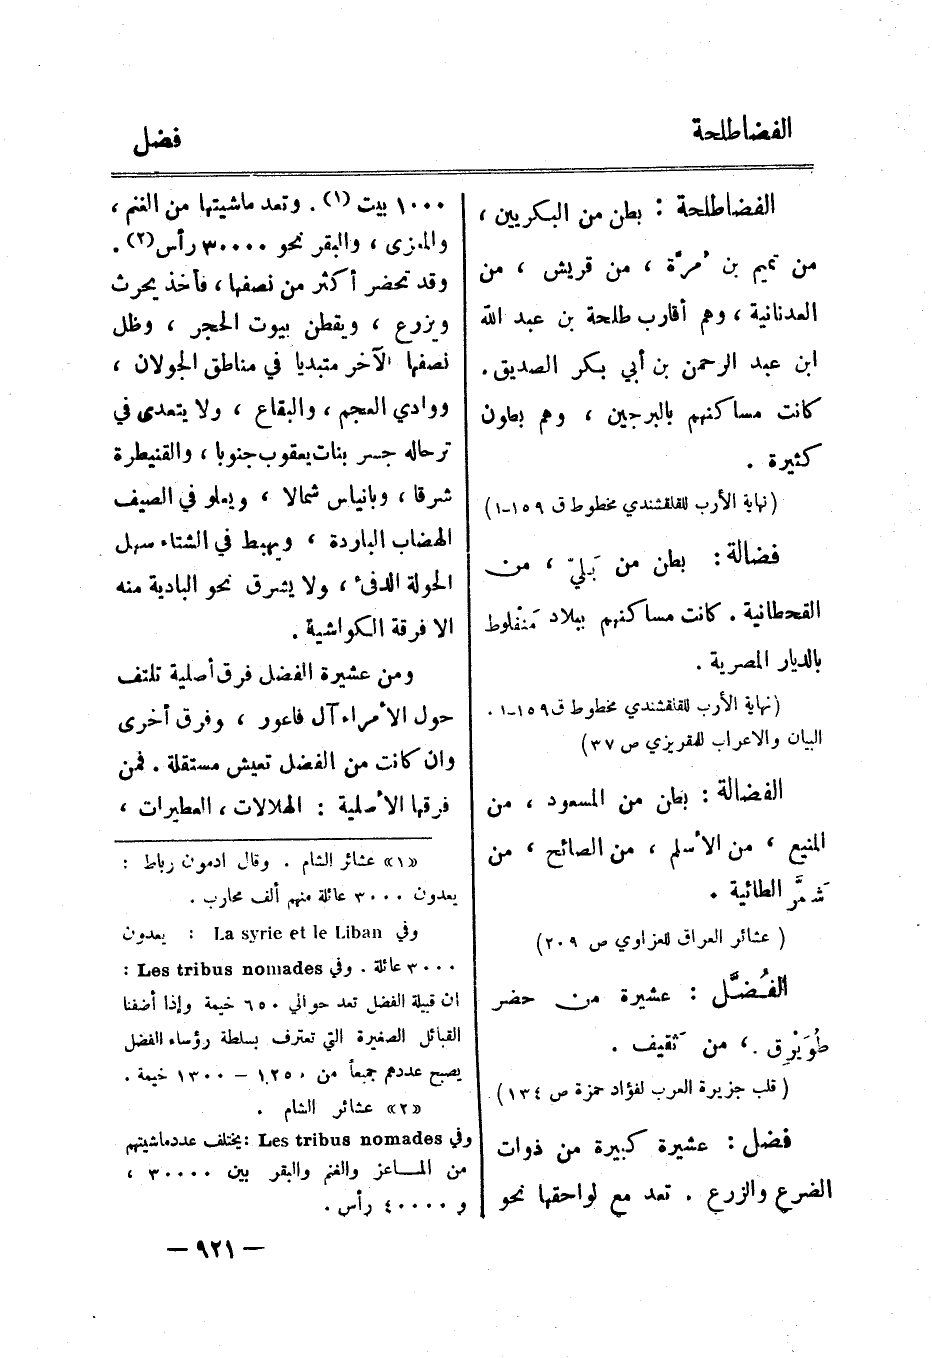 الفضاطلحة
فضل
الفضاطلحة : بطن من البكريين ،
من تميم بن مُرَّة ، من قريش ، من
العدنانية ، وهم أقارب طلحة بن عبد الله
ابن عبد الرحمن بن أبي بكر الصديق .
كانت مساكنهم بالبرجين ، وهم بطون
كثيرة .
(نهاية الأرب للقلقشندي مخطوط ق ١٥٩-١)
فضالة : بطن من بَلِيّ ، من
القحطانية . كانت مساكنهم ببلاد مَنْفلوط
بالديار المصرية .
(نهاية الأرب للقلقشندي مخطوط ق ١٥٩-١ .
البيان والاعراب للمقريزي ص ٣٧)
الفضالة : بطن من المسعود ، من
المنيع ، من الأسلم ، من الصائح ، من
شَمَّر الطائية .
( عشائر العراق للعزاوي ص ٢٠٩)
الفُضَّل : عشيرة من حضر
طُوَيْرِق ، من ثَقيف .
( قلب جزيرة العرب لفؤاد حمزة ص ١٣٤)
فضل : عشيرة كبيرة من ذوات
الضرع والزرع . تعد مع لواحقها نحو
١٠٠٠ بيت (١) . وتعد ماشيتها من الغنم ،
والمعزى ، والبقر نحو ٣٠٠٠٠ رأس (٢) .
وقد تحضر أكثر من نصفها ، فأخذ يحرث
ويزرع ، ويقطن بيوت الحجر ، وظل
نصفها الآخر متبديا في مناطق الجولان ،
ووادي العجم ، والبقاع ، ولا يتعدى في
ترحاله جسر بنات يعقوب جنوبا ، والقنيطرة
شرقا ، وبانياس شمالا ، ويعلو في الصيف
الهضاب الباردة ، ويهبط في الشتاء سهل
الحولة الدفئ ، ولا يشرق نحو البادية منه
الا فرقة الكواشية .
ومن عشيرة الفضل فرق أصلية تلتف
حول الأمراء آل فاعور ، وفرق أخرى
وان كانت من الفضل تعيش مستقلة . فمن
فرقها الأصلية : الهلالات ، العطيرات ،
«١» عشائر الشام . وقال ادمون رباط :
يعدون ٣٠٠٠ عائلة منهم ألف محارب .
وفي La syrie et le Liban : يعدون
٣٠٠٠ عائلة . وفي Les tribus nomades :
ان قبيلة الفضل تعد حوالي ٦٥٠ خيمة وإذا أضفنا
القبائل الصغيرة التي تعترف بسلطة رؤساء الفضل
يصبح عددهم جميعاً من ١٢٥٠ – ١٣٠٠ خيمة .
«٢» عشائر الشام .
وفي Les tribus nomades : يختلف عدد ماشيتهم
من المـاعز والغنم والبقر بين ٣٠٠٠٠ ،
و ٤٠٠٠٠ رأس .
– ٩٢١ –